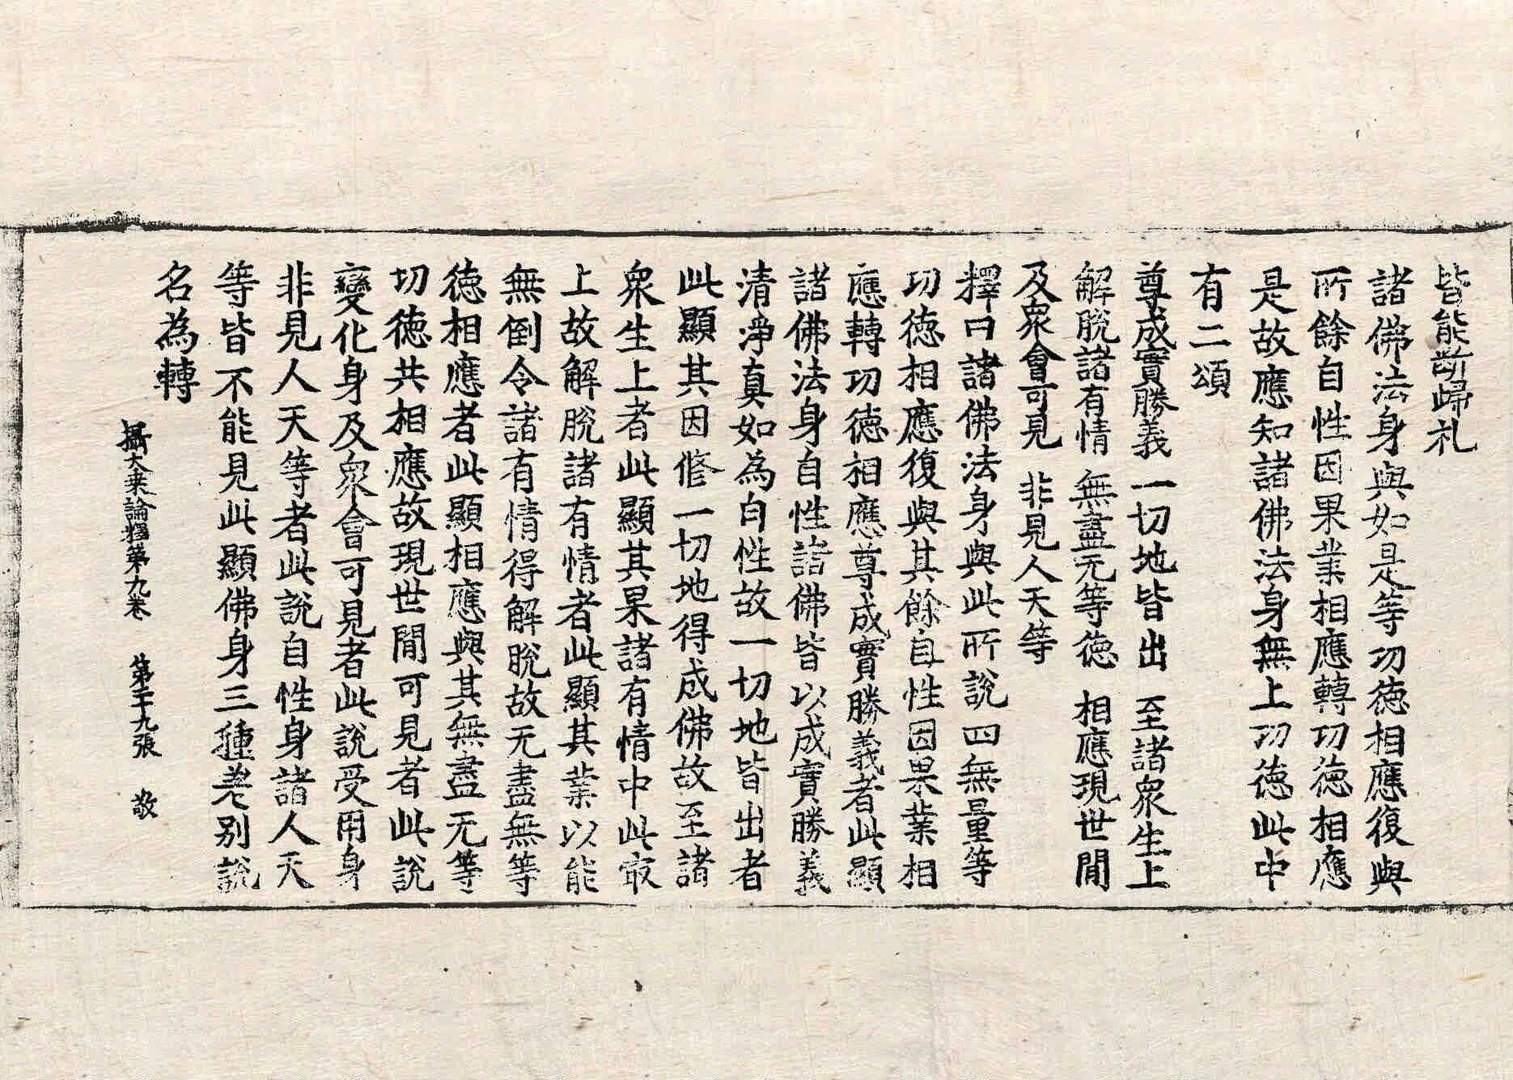 皆能断歸礼
諸佛法身與如是等功徳相應復與
所餘自性因果業相應轉功徳相應
是故應知諸佛法身無上功徳此中
有二頌
尊成實勝義　一切地皆出　至諸衆生上
解脫諸有情　無盡无等徳　相應現世間
及衆會可見　非見人天等
釋曰諸佛法身與此所說四無量等
功徳相應復與其餘自性因果業相
應轉功徳相應尊成實勝義者此顯
諸佛法身自性諸佛皆以成實勝義
清淨真如為自性故一切地皆出者
此顯其因修一切地得成佛故至諸
衆生上者此顯其果諸有情中此㝡
上故解脫諸有情者此顯其業以能
無倒令諸有情得解脫故无盡無等
徳相應者此顯相應與其無盡无等
功徳共相應故現世間可見者此說
變化身及衆會可見者此說受用身
非見人天等者此說自性身諸人天
等皆不能見此顯佛身三種差别說
名為轉
攝大乗論釋第九卷　第二十九張　敬